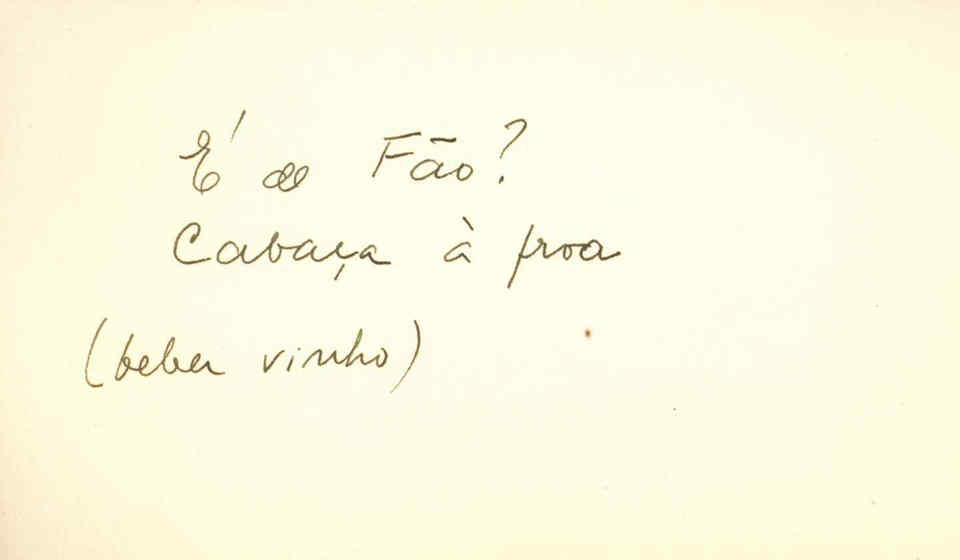 É de Fão?
Cabaça à proa
(beber vinho)